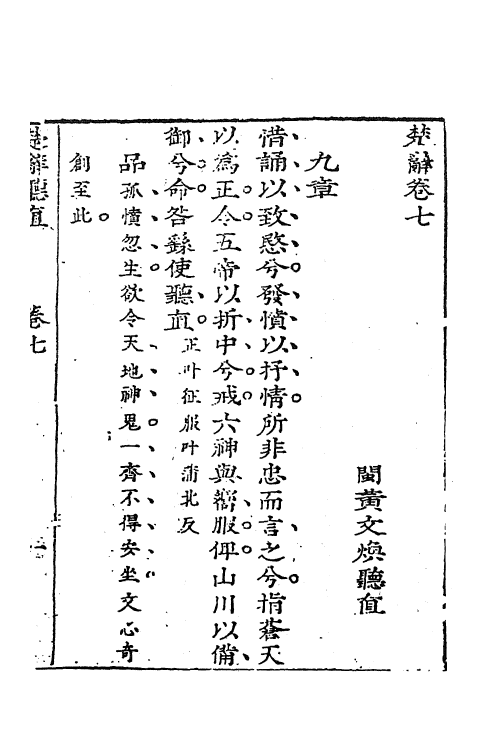 楚辭卷七
閩黃文煥聽直
九章
惜誦以致愍兮發憤以抒情所非忠而言之兮指蒼天
以為正令五帝以折中兮戒六神與嚮服俾山川以備
御兮命咎繇使聽直正叶征服叶蒲北反
品孤憤忽生欲令天地神鬼一齊不得安坐文心奇
創至此
楚辭聽直
卷七
一